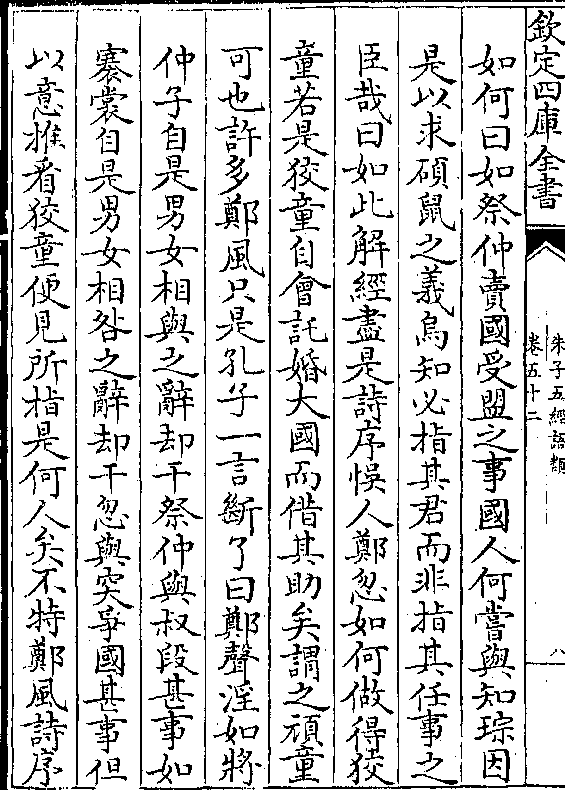 欽定四庫全書
朱子五經語類
卷五十二
八
如何曰如祭仲賣國受盟之事國人何嘗與知琮因
是以求碩鼠之義烏知必指其君而非指其任事之
臣哉曰如此解經盡是詩序悞人鄭忽如何做得狡
童若是狡童自會託婚大國而借其助矣謂之頑童
可也許多鄭風只是孔子一言斷了曰鄭聲淫如將
仲子自是男女相與之辭却干祭仲與叔段甚事如
褰裳自是男女相咎之辭却干忽與突爭國甚事但
以意推看狡童便見所指是何人矣不特鄭風詩序